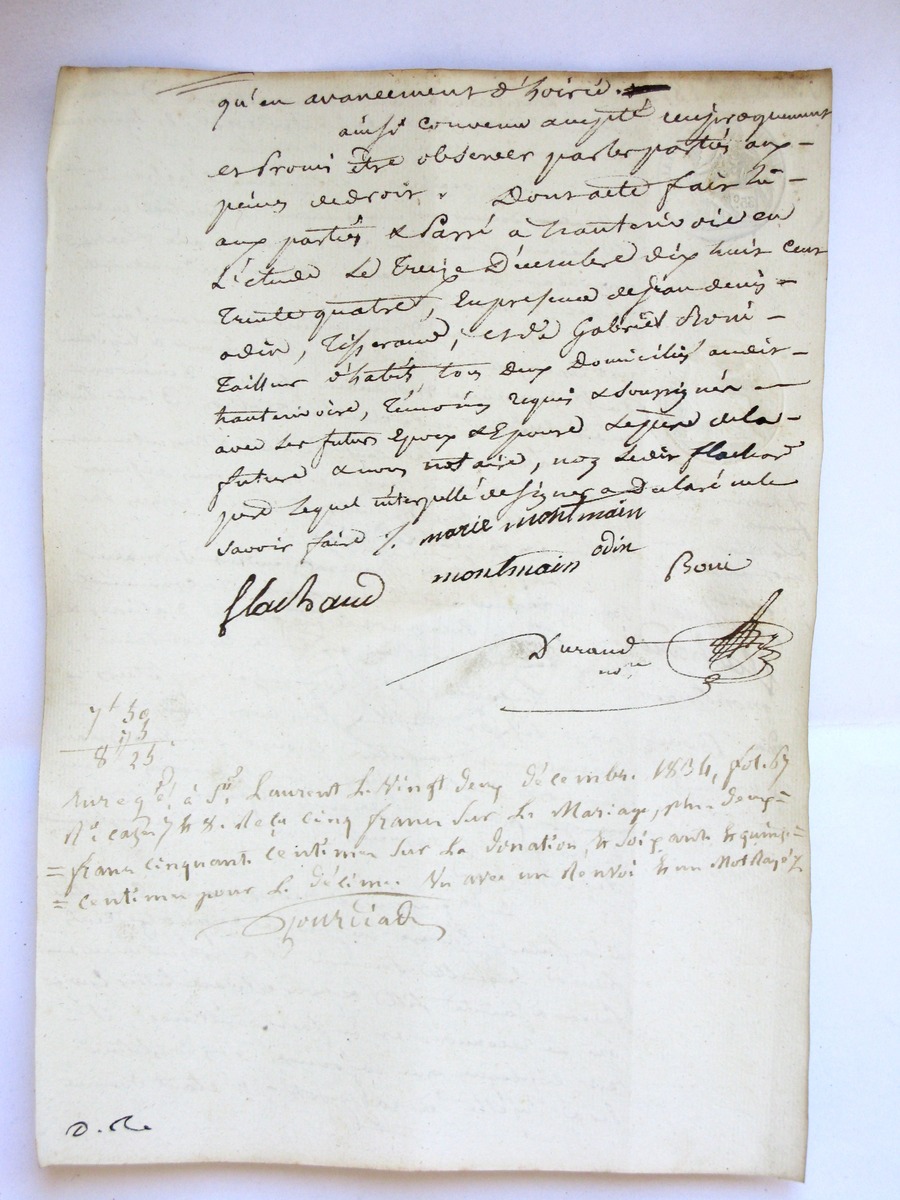 qu'en avancement d'hoirie.
ainsi convenu accepté reciproquement
et Promi être observer par les parties aux
peines de droit. Dont acte fait lu
aux parties & Passé à hauterivoire en
L'étude Le Treize Décembre dix huit cent
Trente quatre, En presence de Jean denis
odin, Tisserand, et de Gabriel Boni
Tailleur d'habits tous deux Domiciliés audit
hauterivoire, Témoins requis & Soussignés
avec Les futurs Epoux & Epouse Le père de la
future & nous notaire, non Ledit flachard
père Lequel interpellé de signer a Declaré ne le
savoir faire /.
marie montmain
flachard montmain odin Boni
Durand
no.re
7f 50
75
8f 25
Enregé. à St. Laurent Le Vingt deux décembre 1834, fol. 67
Ro. cazes 7 & 8. Reçu cinq francs sur Le Mariage, plus deux
= francs cinquante centimes sur La donation, & soixante & quinze =
= centimes pour Le décime. Vu avec un Renvoi & un Mot Rayé /.
D. R.